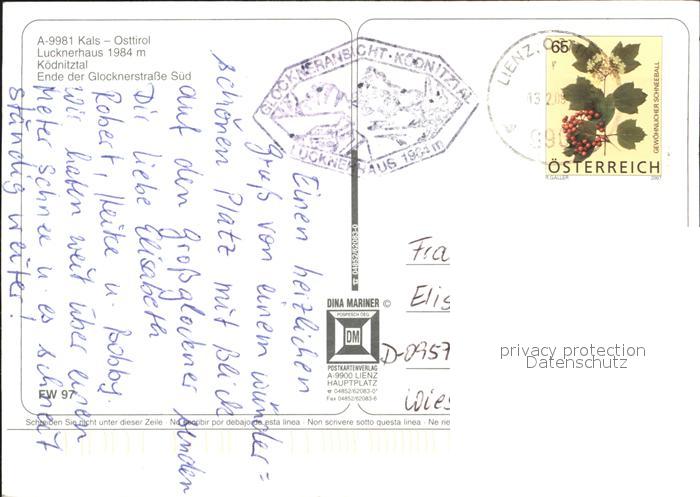 A-9981 Kals – Osttirol
Lucknerhaus 1984 m
Ködnitztal
Ende der Glocknerstraße Süd
GLOCKNERANSICHT · KÖDNITZTAL
LUCKNERHAUS 1984 m
LIENZ, O
13.2.08
65
GEWÖHNLICHER SCHNEEBALL
ÖSTERREICH
R.GALLER
2007
Einen herzlichen
Gruß von einem wunder=
schönen Platz mit Blick
auf den Großglockner senden
Dir liebe Elisabeth
Robert, Heike u. Bobby.
Wir haben weit über einen
Meter Schnee u. es schneit
ständig weiter!
☎ 04852/62083-0
Fra
Elis
D-0957
Wies
DINA MARINER ©
POSPESCH OEG
DM
POSTKARTENVERLAG
A-9900 LIENZ
HAUPTPLATZ
☎ 04852/62083-0*
Fax 04852/62083-6
privacy protection
Datenschutz
FW 97
Schreiben Sie nicht unter dieser Zeile · No escribir por debajo de esta linea · Non scrivere sotto questa linea · Ne rie